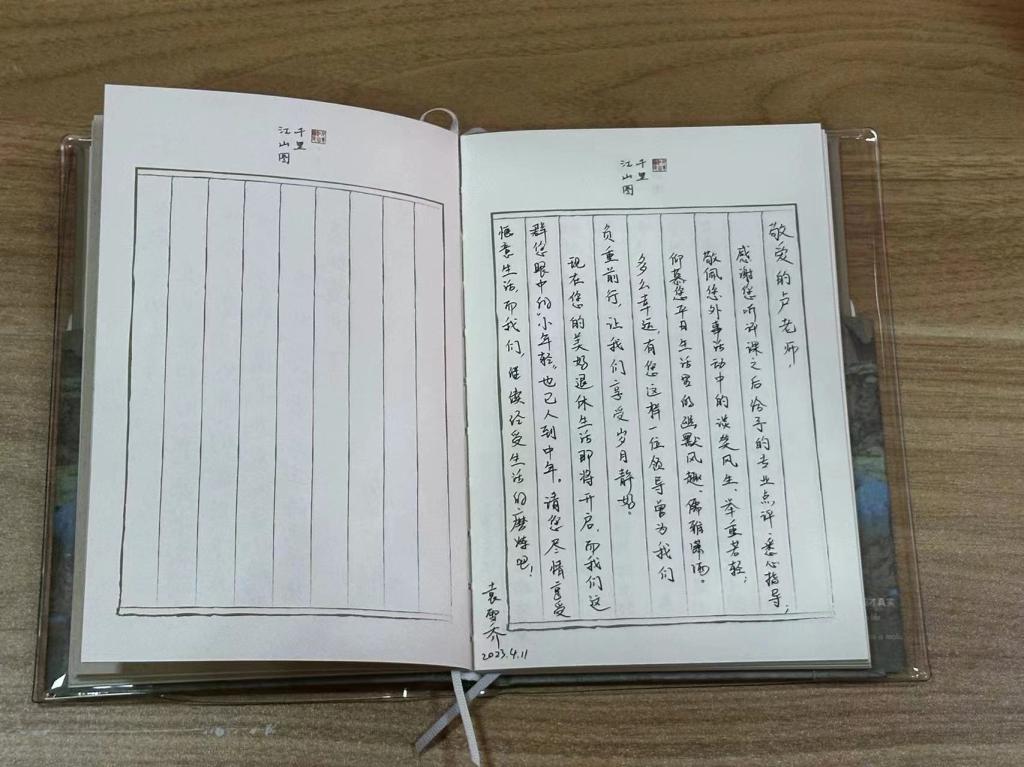 千里
江山图
千里
江山图
敬爱的卢老师，
感谢您听评课之后给予的专业点评、悉心指导；
敬佩您外事活动中的谈笑风生、举重若轻；
仰慕您平日生活里的幽默风趣、儒雅潇洒。
多么幸运，有您这样一位领导曾为我们
负重前行，让我们享受岁月静好。
现在您的美好退休生活即将开启，而我们这
群您眼中的“小年轻”也已人到中年。请您尽情享受
惬意生活，而我们，继续经受生活的磨炼吧！
袁雪乔
2023.4.11